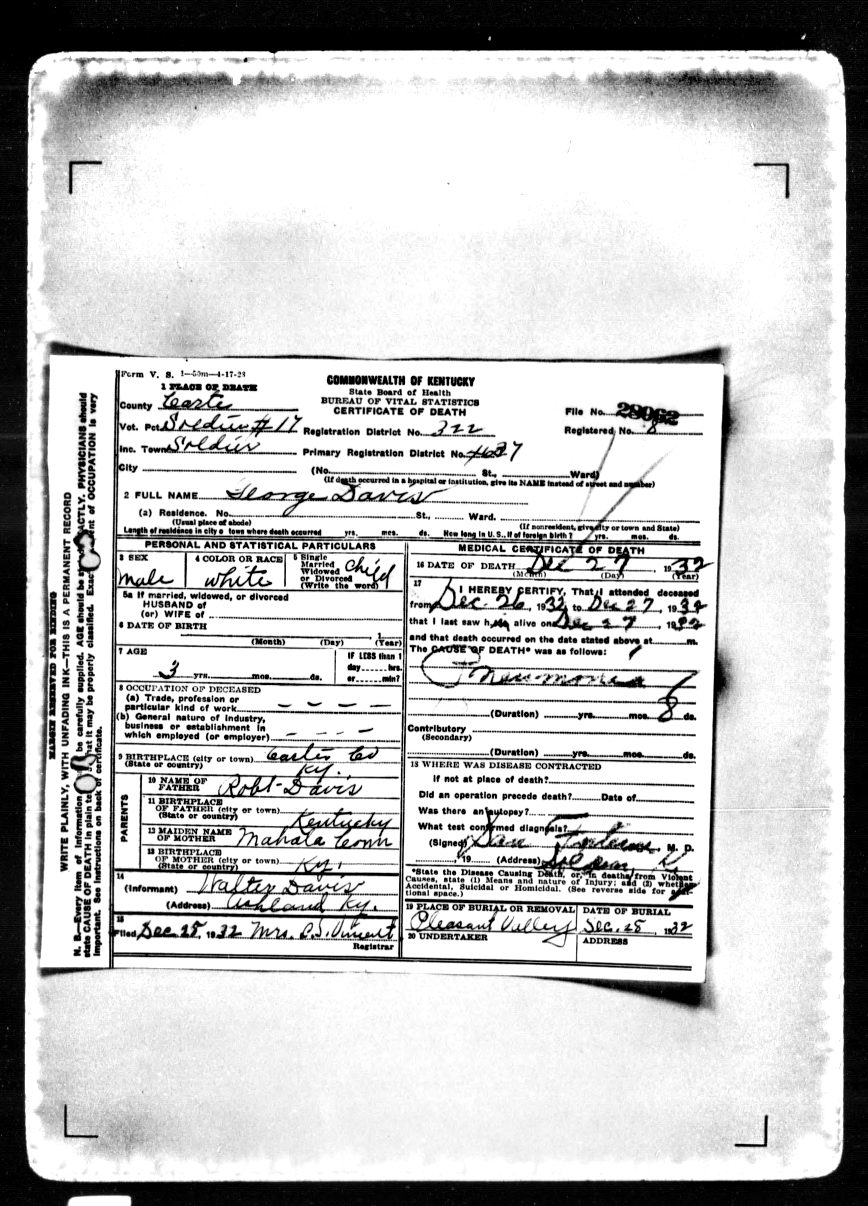 Form V. S. 1—50m—4-17-23
COMMONWEALTH OF KENTUCKY
State Board of Health
BUREAU OF VITAL STATISTICS
CERTIFICATE OF DEATH
1 PLACE OF DEATH
County Carter
Vot. Pct. Soldier #17
Inc. Town Soldier
City
Registration District No. 322
Primary Registration District No.
File No. 29062
Registered No. 8
(No. St., Ward)
(If death occurred in a hospital or institution, give its NAME instead of street and number)
2 FULL NAME George Davis
(a) Residence. No. St., Ward.
(Usual place of abode) (If nonresident, give city or town and State)
Length of residence in city o town where death occurred yrs. mos. ds. How long in U. S., if of foreign birth? yrs. mos. ds.
PERSONAL AND STATISTICAL PARTICULARS
3 SEX
male
4 COLOR OR RACE
white
5 Single
Married
Widowed
or Divorced
(Write the word)
child
5a If married, widowed, or divorced
HUSBAND of
(or) WIFE of
6 DATE OF BIRTH
(Month) (Day) (Year)
7 AGE
3 yrs. mos. ds.
IF LESS than 1
day hrs.
or min?
8 OCCUPATION OF DECEASED
(a) Trade, profession or
particular kind of work
(b) General nature of industry,
business or establishment in
which employed (or employer)
9 BIRTHPLACE (city or town) Carter Co
(State or country) Ky.
PARENTS
10 NAME OF
FATHER Robt Davis
11 BIRTHPLACE
OF FATHER (city or town)
(State or country) Kentucky
12 MAIDEN NAME
OF MOTHER Mahala Conn
13 BIRTHPLACE
OF MOTHER (city or town)
(State or country) Ky.
14
(Informant) Walter Davis
(Address) Ashland Ky.
15
Filed Dec 28, 1932 Mrs. Vincent
Registrar
MEDICAL CERTIFICATE OF DEATH
16 DATE OF DEATH Dec 27, 1932
(Month) (Day) (Year)
17
I HEREBY CERTIFY, That I attended deceased
from Dec. 26, 1932 to Dec 27, 1932
that I last saw him alive on Dec 27, 1932
and that death occurred on the date stated above at m.
The CAUSE OF DEATH* was as follows:
Pneumonia
(Duration) yrs. mos. 8 ds.
Contributory
(Secondary)
(Duration) yrs. mos. ds.
18 WHERE WAS DISEASE CONTRACTED
If not at place of death?
Did an operation precede death? Date of
Was there an autopsy?
What test confirmed diagnosis?
(Signed) M. D.
19 (Address) Soldier, K
*State the Disease Causing Death, or, in deaths from Violent
Causes, state (1) Means and nature of Injury; and (2) whether
Accidental, Suicidal or Homicidal. (See reverse side for
tional space.)
19 PLACE OF BURIAL OR REMOVAL
Pleasant Valley
DATE OF BURIAL
Dec. 28, 1932
20 UNDERTAKER
ADDRESS
MARGIN RESERVED FOR BINDING
WRITE PLAINLY, WITH UNFADING INK—THIS IS A PERMANENT RECORD
N. B.—Every item of information be carefully supplied. AGE should be EXACTLY. PHYSICIANS should
state CAUSE OF DEATH in plain that it may be properly classified. of OCCUPATION is very
important. See instructions on back of certificate.